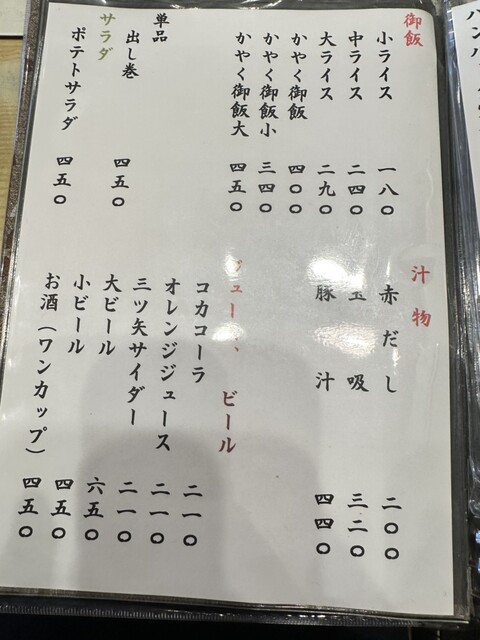 御飯
小ライス 一八〇
中ライス 二四〇
大ライス 二九〇
かやく御飯 四〇〇
かやく御飯小 三四〇
かやく御飯大 四五〇
単品
出し巻 四五〇
サラダ
ポテトサラダ 四五〇
汁物
赤だし 二〇〇
玉吸 三二〇
豚汁 四四〇
ジュース、ビール
コカコーラ 二一〇
オレンジジュース 二一〇
三ツ矢サイダー 二一〇
大ビール 六五〇
小ビール 四五〇
お酒（ワンカップ） 四五〇